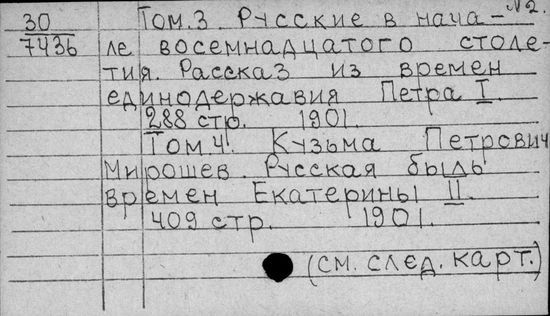 30 Том.3 Русские в нача- №2.
7436 ле восемнадцатого столе-
тия. Рассказ из времен
единодержавия Петра I.
288 стр. 1901.
Том 4. Кузьма Петрович
Мирошев. Русская быль
времен Екатерины II.
409 стр. 1901.
(см. след. карт.)